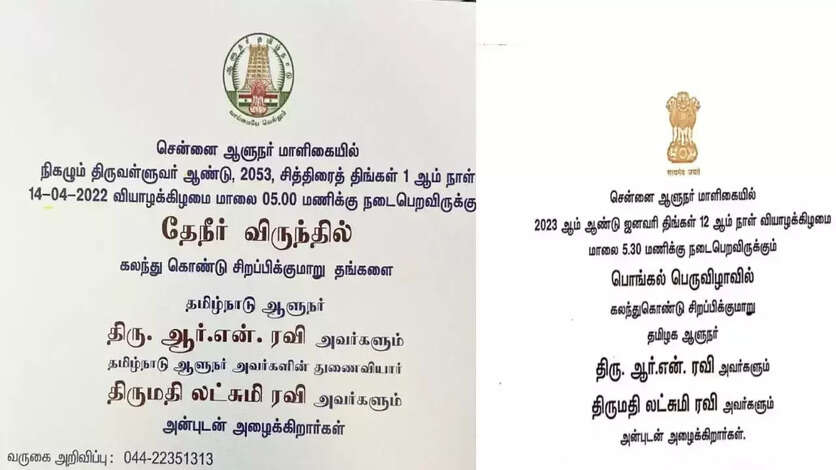 சென்னை ஆளுநர் மாளிகையில்
நிகழும் திருவள்ளுவர் ஆண்டு, 2053, சித்திரைத் திங்கள் 1 ஆம் நாள்
14-04-2022 வியாழக்கிழமை மாலை 05.00 மணிக்கு நடைபெறவிருக்கு
தேநீர் விருந்தில்
கலந்து கொண்டு சிறப்பிக்குமாறு தங்களை
தமிழ்நாடு ஆளுநர்
திரு. ஆர்.என். ரவி அவர்களும்
தமிழ்நாடு ஆளுநர் அவர்களின் துணைவியார்
திருமதி லட்சுமி ரவி அவர்களும்
அன்புடன் அழைக்கிறார்கள்
வருகை அறிவிப்பு : 044-22351313
सत्यमेव जयते
சென்னை ஆளுநர் மாளிகையில்
2023 ஆம் ஆண்டு ஜனவரி திங்கள் 12 ஆம் நாள் வியாழக்கிழமை
மாலை 5.30 மணிக்கு நடைபெறவிருக்கும்
பொங்கல் பெருவிழாவில்
கலந்துகொண்டு சிறப்பிக்குமாறு
தமிழக ஆளுநர்
திரு. ஆர்.என். ரவி அவர்களும்
திருமதி லட்சுமி ரவி அவர்களும்
அன்புடன் அழைக்கிறார்கள்.